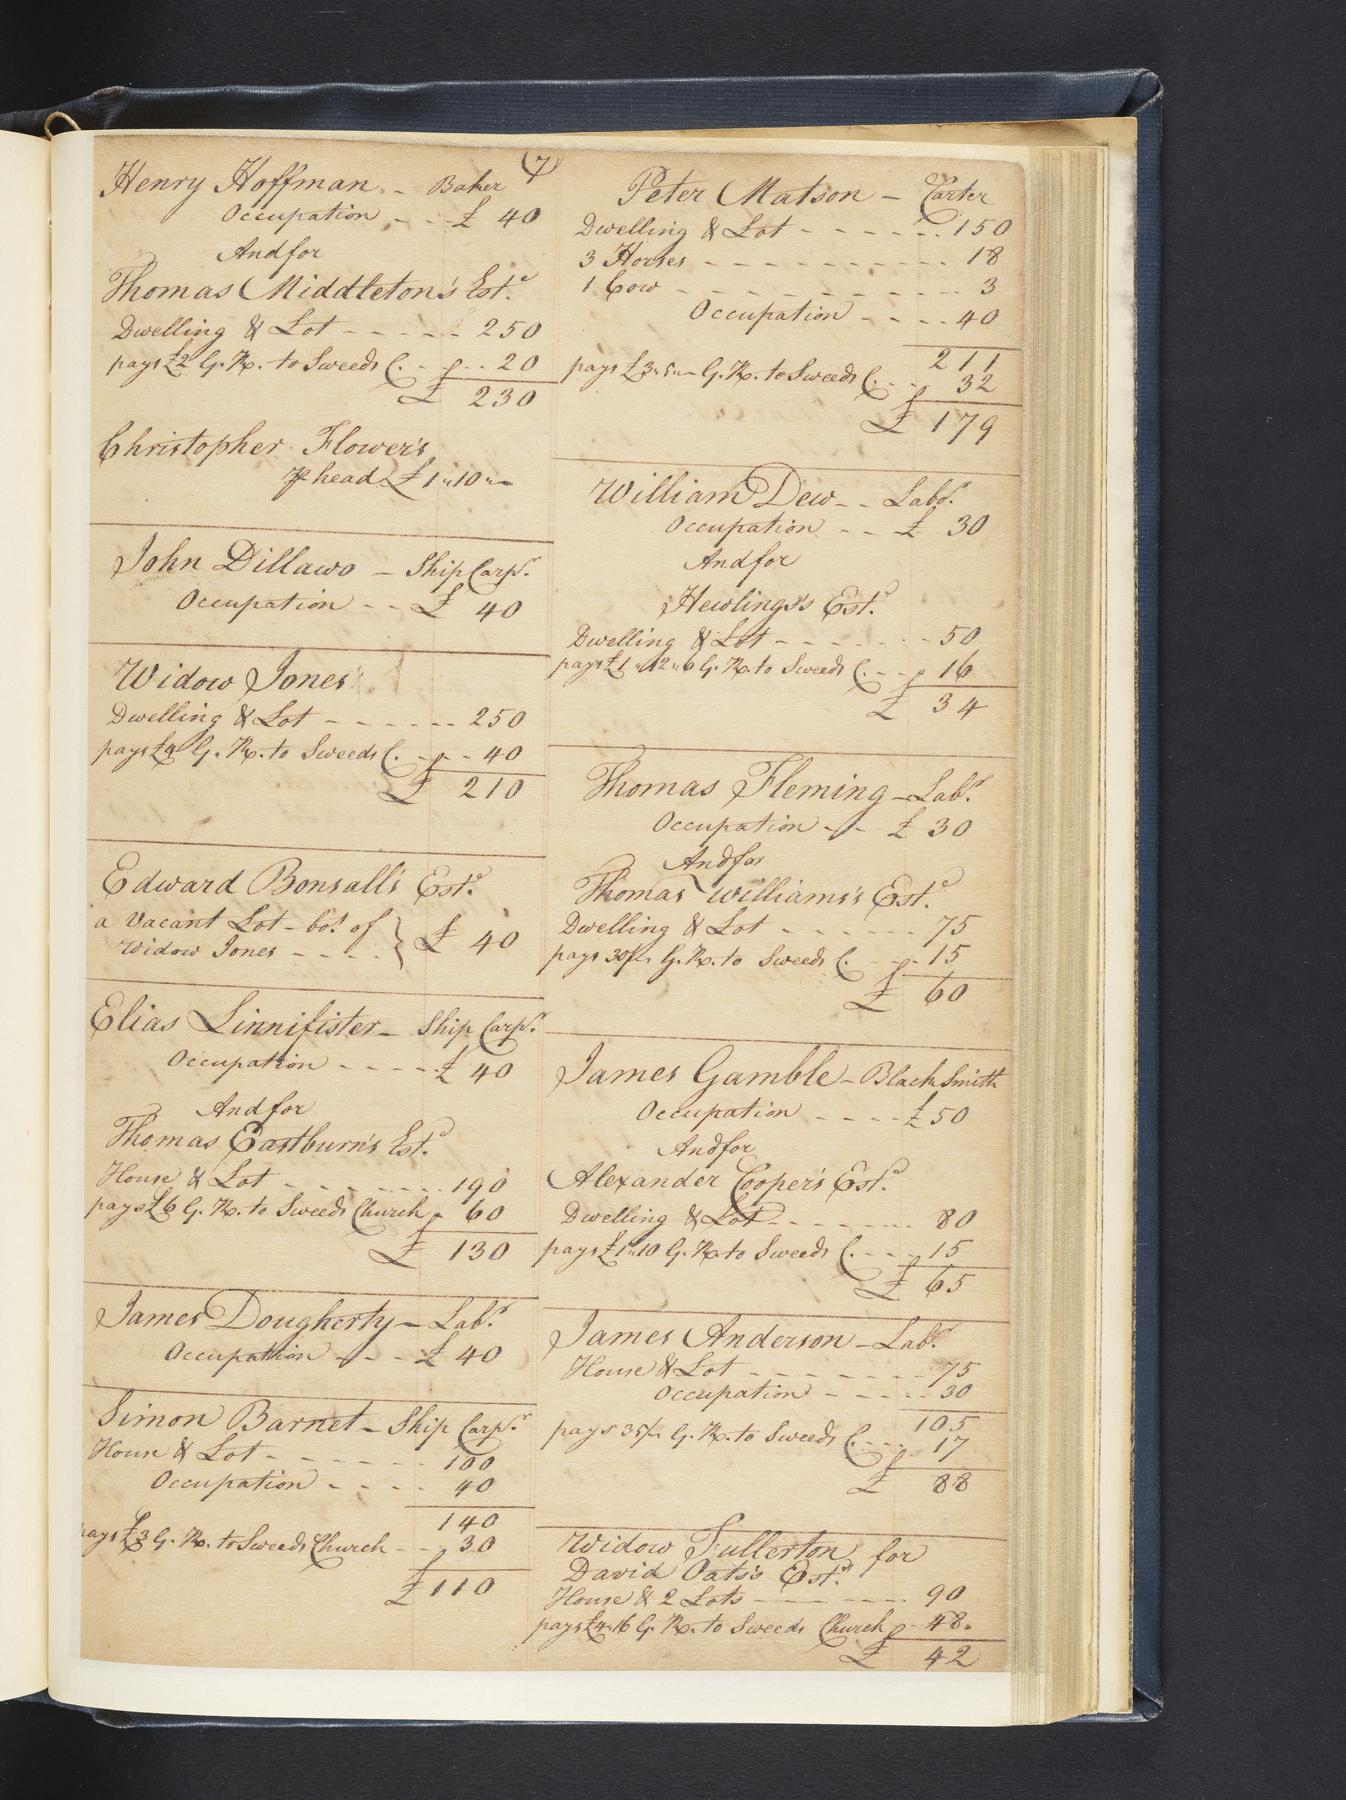 (7)
Henry Hoffman - Baker
Occupation - - - £ 40
And for
Thomas Middleton's Est.e
Dwelling & Lot - - - - - 250
pays £2 G. R. to Sweeds C. - - - 20
£ 230
Christopher Flower's
℔ head £ 1 " 10 " -
John Dillawo - Ship Carp.r
Occupation - - £ 40
Widow Jones
Dwelling & Lot - - - - - - 250
pays £4 G. R. to Sweeds C. - - - 40
£ 210
Edward Bonsall's Est.e
a Vacant Lot - bot. of
Widow Jones - - - - } £ 40
Elias Linnifister - Ship Carp.r
Occupation - - - - £ 40
And for
Thomas Eastburn's Est.e
House & Lot - - - - - - - 190
pays £6 G. R. to Sweeds Church - 60
£ 130
James Dougherty - Lab.r
Occupation - - - £ 40
Simon Barnet - Ship Carp.r
House & Lot - - - - - - 100
Occupation - - - - 40
140
pays £3 G. R. to Sweeds Church - - 30
£ 110
Peter Matson - Carter
Dwelling & Lot - - - - - - 150
3 Horses - - - - - - - - - - 18
1 Cow - - - - - - - - - - - 3
Occupation - - - - 40
211
pays £3 " 5 " - G. R. to Sweeds C. - - 32
£ 179
William Dew - - Lab.r
Occupation - - £ 30
And for
Hewlings's Est.e
Dwelling & Lot - - - - - - 50
pays £1 " 12 " 6 G. R. to Sweeds C. - - 16
£ 34
Thomas Fleming - Lab.r
Occupation - - £ 30
And for
Thomas Williams's Est.e
Dwelling & Lot - - - - - - 75
pays 30/- G. R. to Sweeds C. - - 15
£ 60
James Gamble - Black Smith
Occupation - - - - £ 50
And for
Alexander Cooper's Est.e
Dwelling & Lot - - - - - - 80
pays £1 " 10 G. R. to Sweeds C. - - - 15
£ 65
James Anderson - Lab.r
House & Lot - - - - - - - 75
Occupation - - - - - 30
105
pays 35/- G. R. to Sweeds C. - - - 17
£ 88
Widow Fullerton for
David Oats's Est.e
House & 2 Lots - - - - - 90
pays £4 " 16 G. R. to Sweeds Church - 48.
£ 42